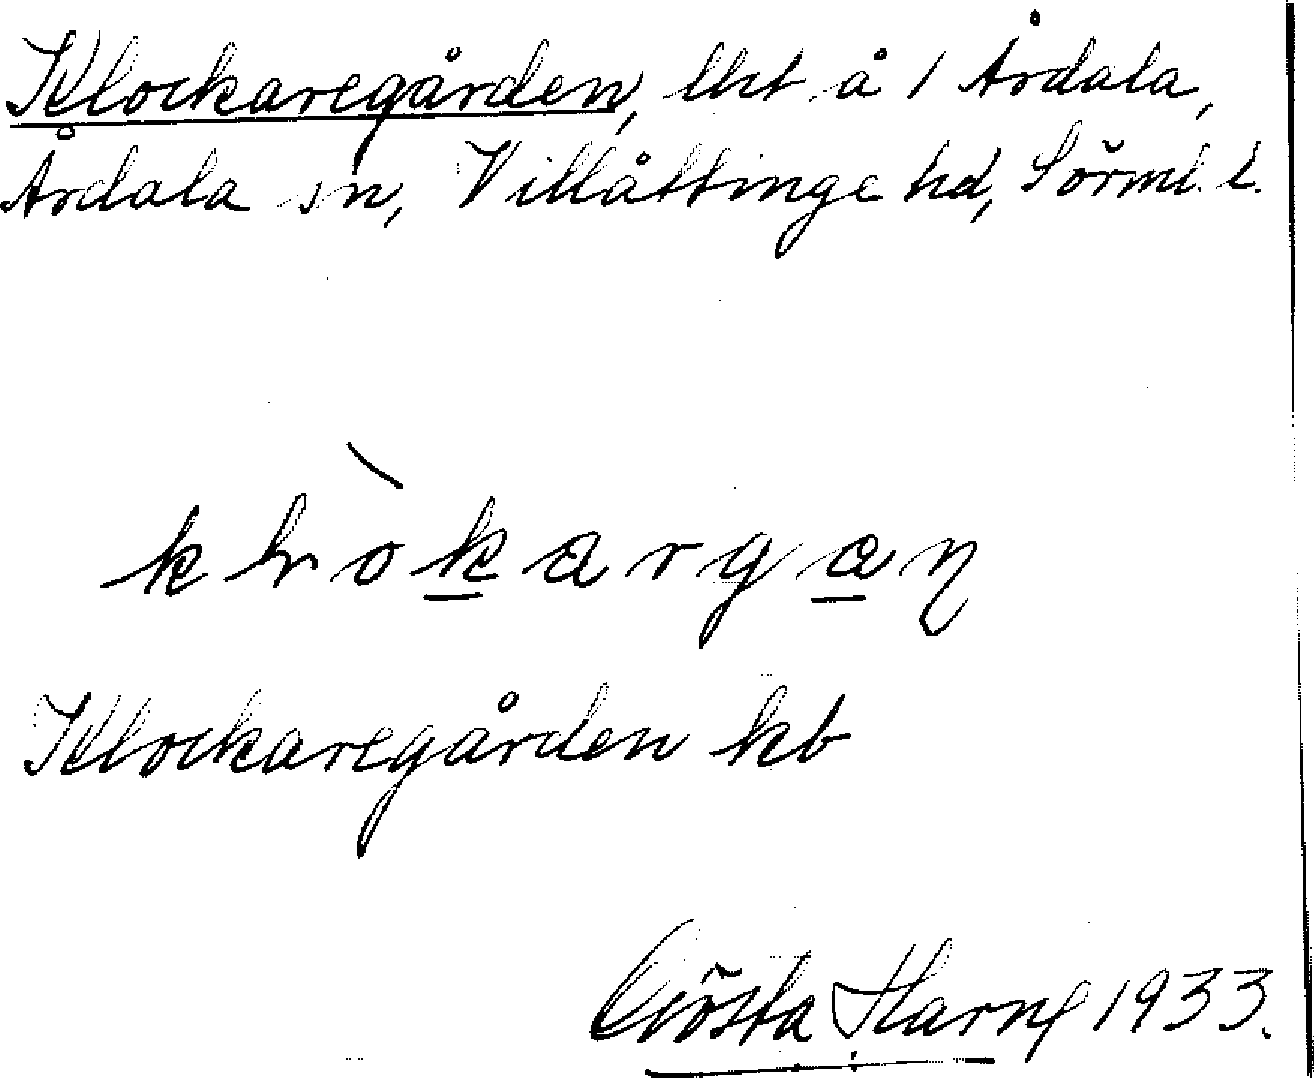 Klockaregården, lht å 1 Årdala,
Årdala sn, Villåttinge hd, Sörml. l.
Klockaregården kb
Gösta Harng 1933.